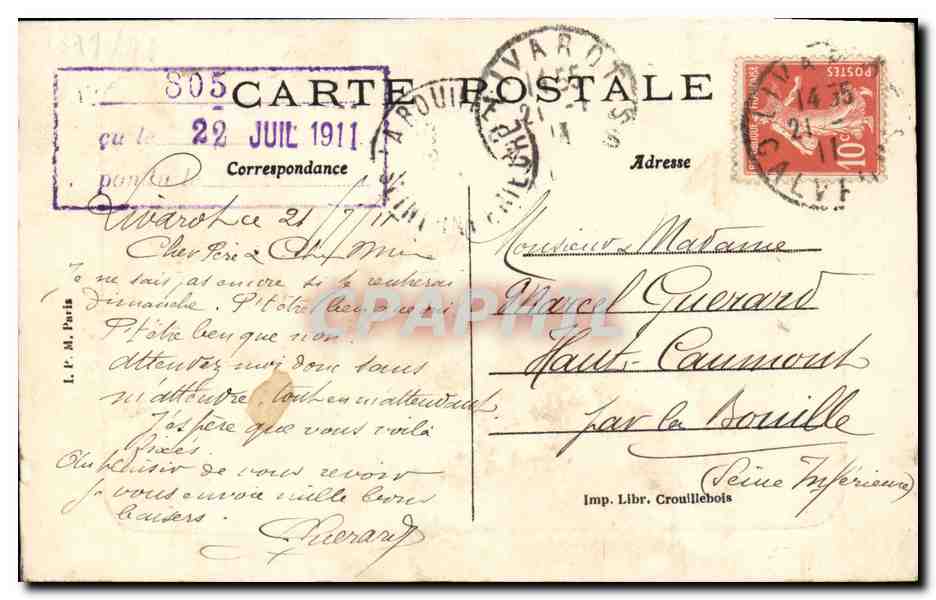 805
CARTE POSTALE
çu le 22 JUIL 1911
Correspondance
Adresse
LIVAROT
14 35
21 -
11
CALVADOS
LA BOUILLE
POSTES
10c
Livarot ce 21/7/11
Cher Père &
Je ne sais pas encore si je rentrerai
Dimanche. P'têtre ben que oui
P'têtre ben que non.
Attendez moi donc sans
m'attendre, tout en m'attendant.
J'espère que vous voilà
fixés.
Au plaisir de vous revoir
Je vous envoie mille bons
baisers.
Guerard
Monsieur & Madame
Marcel Guerard
Haut-Caumont
par la Bouille
(Seine Inférieure)
I. P. M. Paris
Imp. Libr. Crouillebois
CPAPHIL